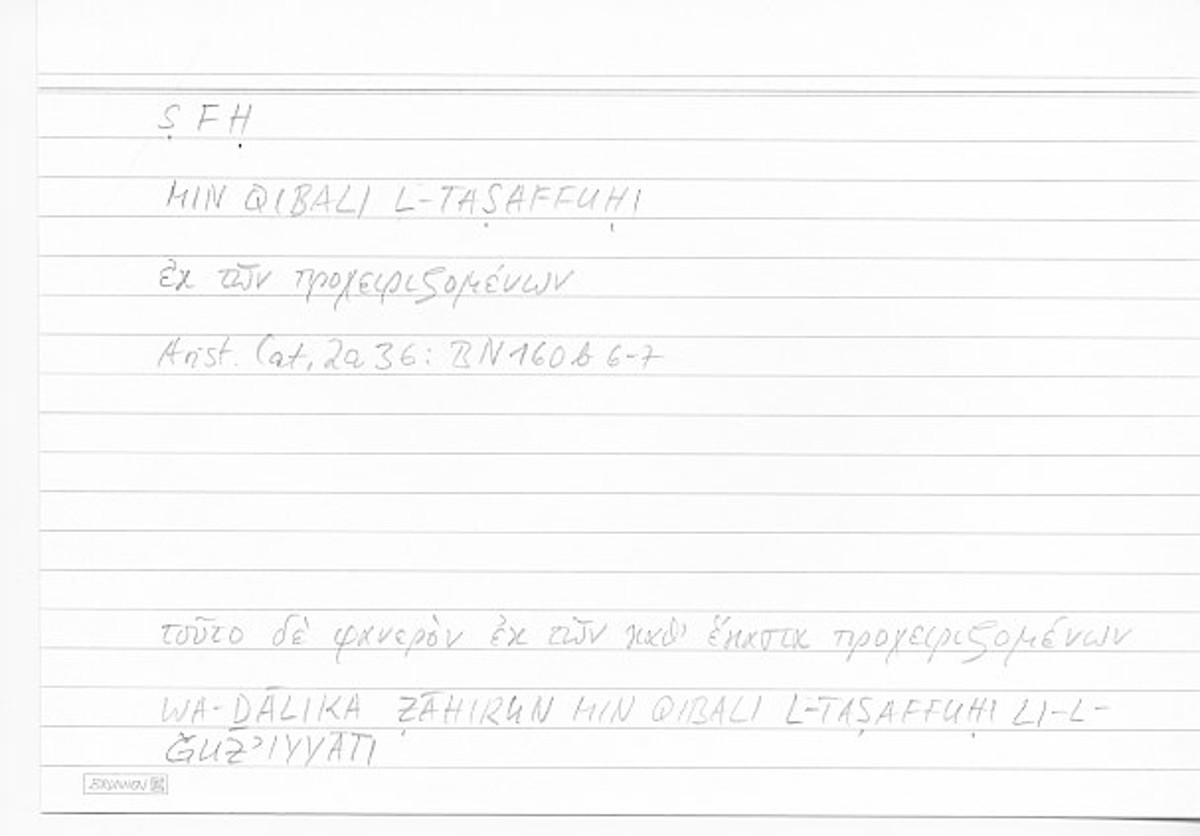 Ṣ F Ḥ
MIN QIBALI L-TAṢAFFUḤI
ἐκ τῶν προχειριζομένων
Arist. Cat. 2a36: BN 160b 6-7
τοῦτο δὲ φανερὸν ἐκ τῶν καθ' ἕκαστα προχειριζομένων
WA-ḎĀLIKA ẒĀHIRUN MIN QIBALI L-TAṢAFFUḤI LI-L-
ǦUZʾIYYĀTI